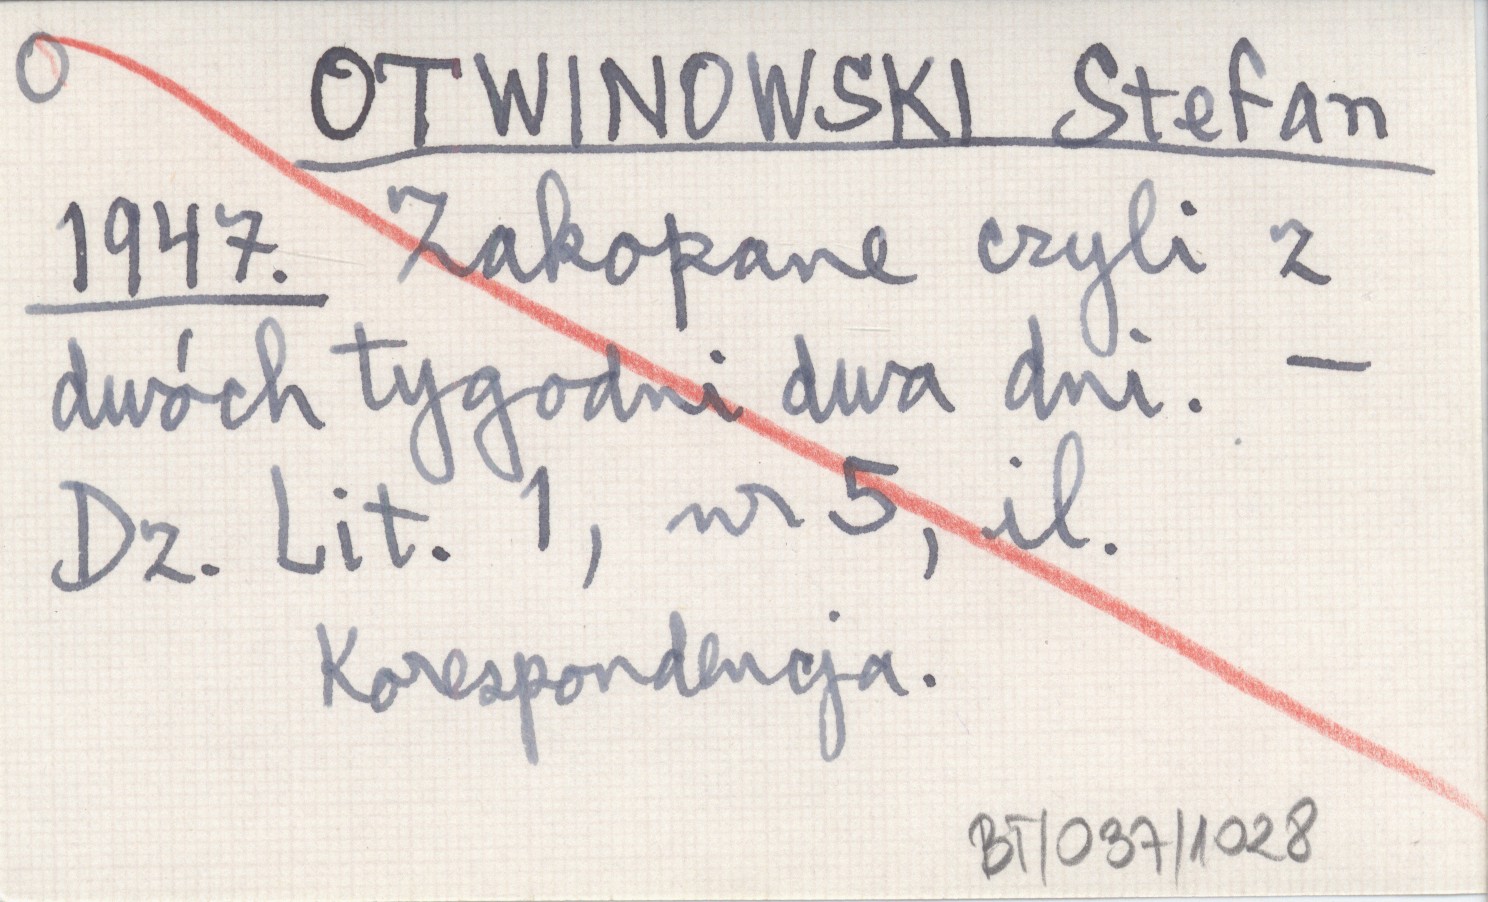 O OTWINOWSKI Stefan
1947. Zakopane czyli z
dwóch tygodni dwa dni. —
Dz. Lit. 1, nr 5, il.
Korespondencja.
BT/037/1028